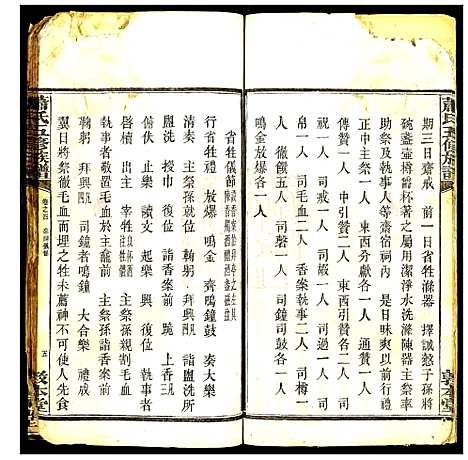 蕭氏五修族譜
敦本堂
期三日齋戒　前一日省牲滌器　擇誠慤子孫將
碗盞壺樽爵杯箸之屬用潔淨水洗滌陳器主祭率
助祭及執事人等齋宿祠內　是日昧爽以前行禮
正中主祭一人　東西分獻各一人　通贊一人
傳贊一人　中引贊二人　東西引贊各二人　司
祝一人　司罇一人　司嘏一人　司饌一人　司過二
人　司帛二人　司毛血二人　香案前二人
人　徹饌五人　司磬一人　司鼓一人　司鐘一人
鳴金放爆各一人
省牲儀節
省牲行禮　放爆　鳴金　齊鳴鐘鼓　奏大樂
清樂　主祭孫就位　鞠躬　拜興　詣盥洗所
盥洗　授巾　復位　詣香案前　跪　上香三
俯伏　止樂　讀文　起樂　興　復位　執事者
牽牲出　主祭
執事者敬置毛血於主龕前　主祭孫詣香案前
鞠躬　拜興　司鐘者鳴鐘　大合樂　禮成
翼日將祭徹毛血而埋之牲未薦神不可使人先食
蕭氏五修族譜
卷之四
五
敦本堂